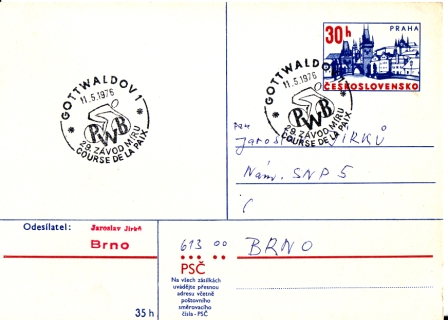 GOTTWALDOV 1
11.5.1976
PWB
29. ZÁVOD MÍRU
COURSE DE LA PAIX
30 h
PRAHA
ČESKOSLOVENSKO
GOTTWALDOV 1
11.5.1976
PWB
29. ZÁVOD MÍRU
COURSE DE LA PAIX
pan
JIRKŮ
Nám. SNP 5
Odesílatel:
Jaroslav Jirků
Brno
613 00
BRNO
PSČ
Na všech zásilkách
uvádějte přesnou
adresu včetně
poštovního
směrovacího
čísla - PSČ
35 h